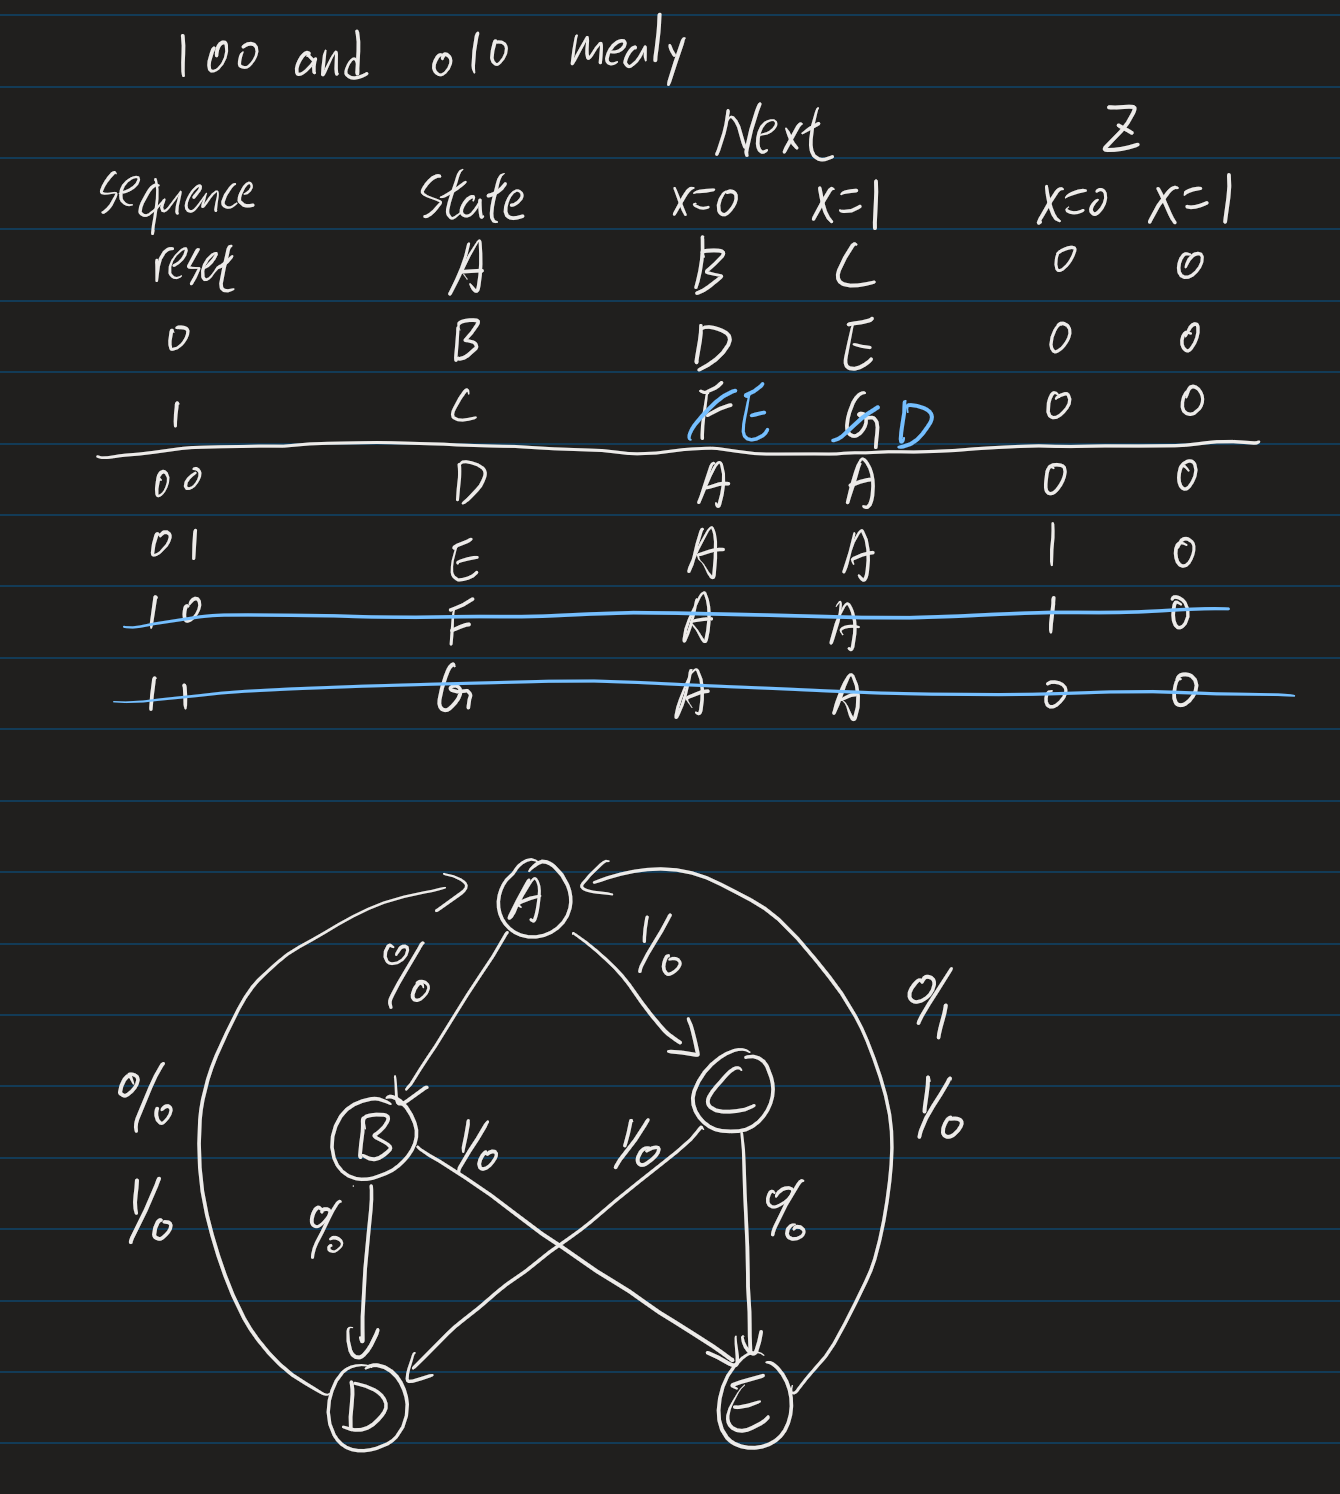 100 and 010 mealy
Next Z
sequence state x=0 x=1 x=0 x=1
reset A B C 0 0
0 B D E 0 0
1 C F E G D 0 0
00 D A A 0 0
01 E A A 1 0
10 F A A 1 0
11 G A A 0 0
A
0/0 1/0
0/1
C
0/0 1/0
B 1/0 1/0
1/0 0/0 0/0
D E